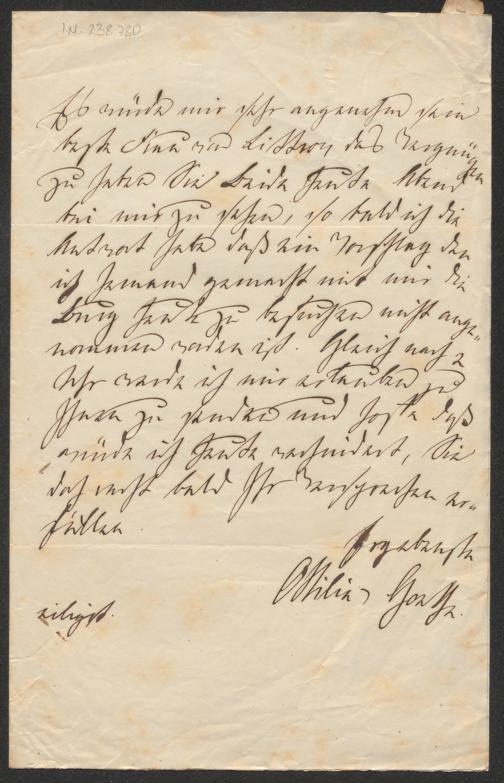 I.N. 238.780
Es würde mir sehr angenehm sein
beste Frau von Littrow das Vergnügen
zu haben Sie Beide heute Abend
bei mir zu sehen, so bald ich die
Antwort habe daß ein Vorschlag den
ich Jemand gemacht mit mir die
Burg heute zu besuchen nicht ange-
nommen worden ist. Gleich nach 2
Uhr werde ich mir erlauben zu
Ihnen zu senden und hoffe daß
würde ich heute verhindert, Sie
doch recht bald Ihr Versprechen er-
füllen.
Ergebenste
Ottilie v Goethe.
eiligst.